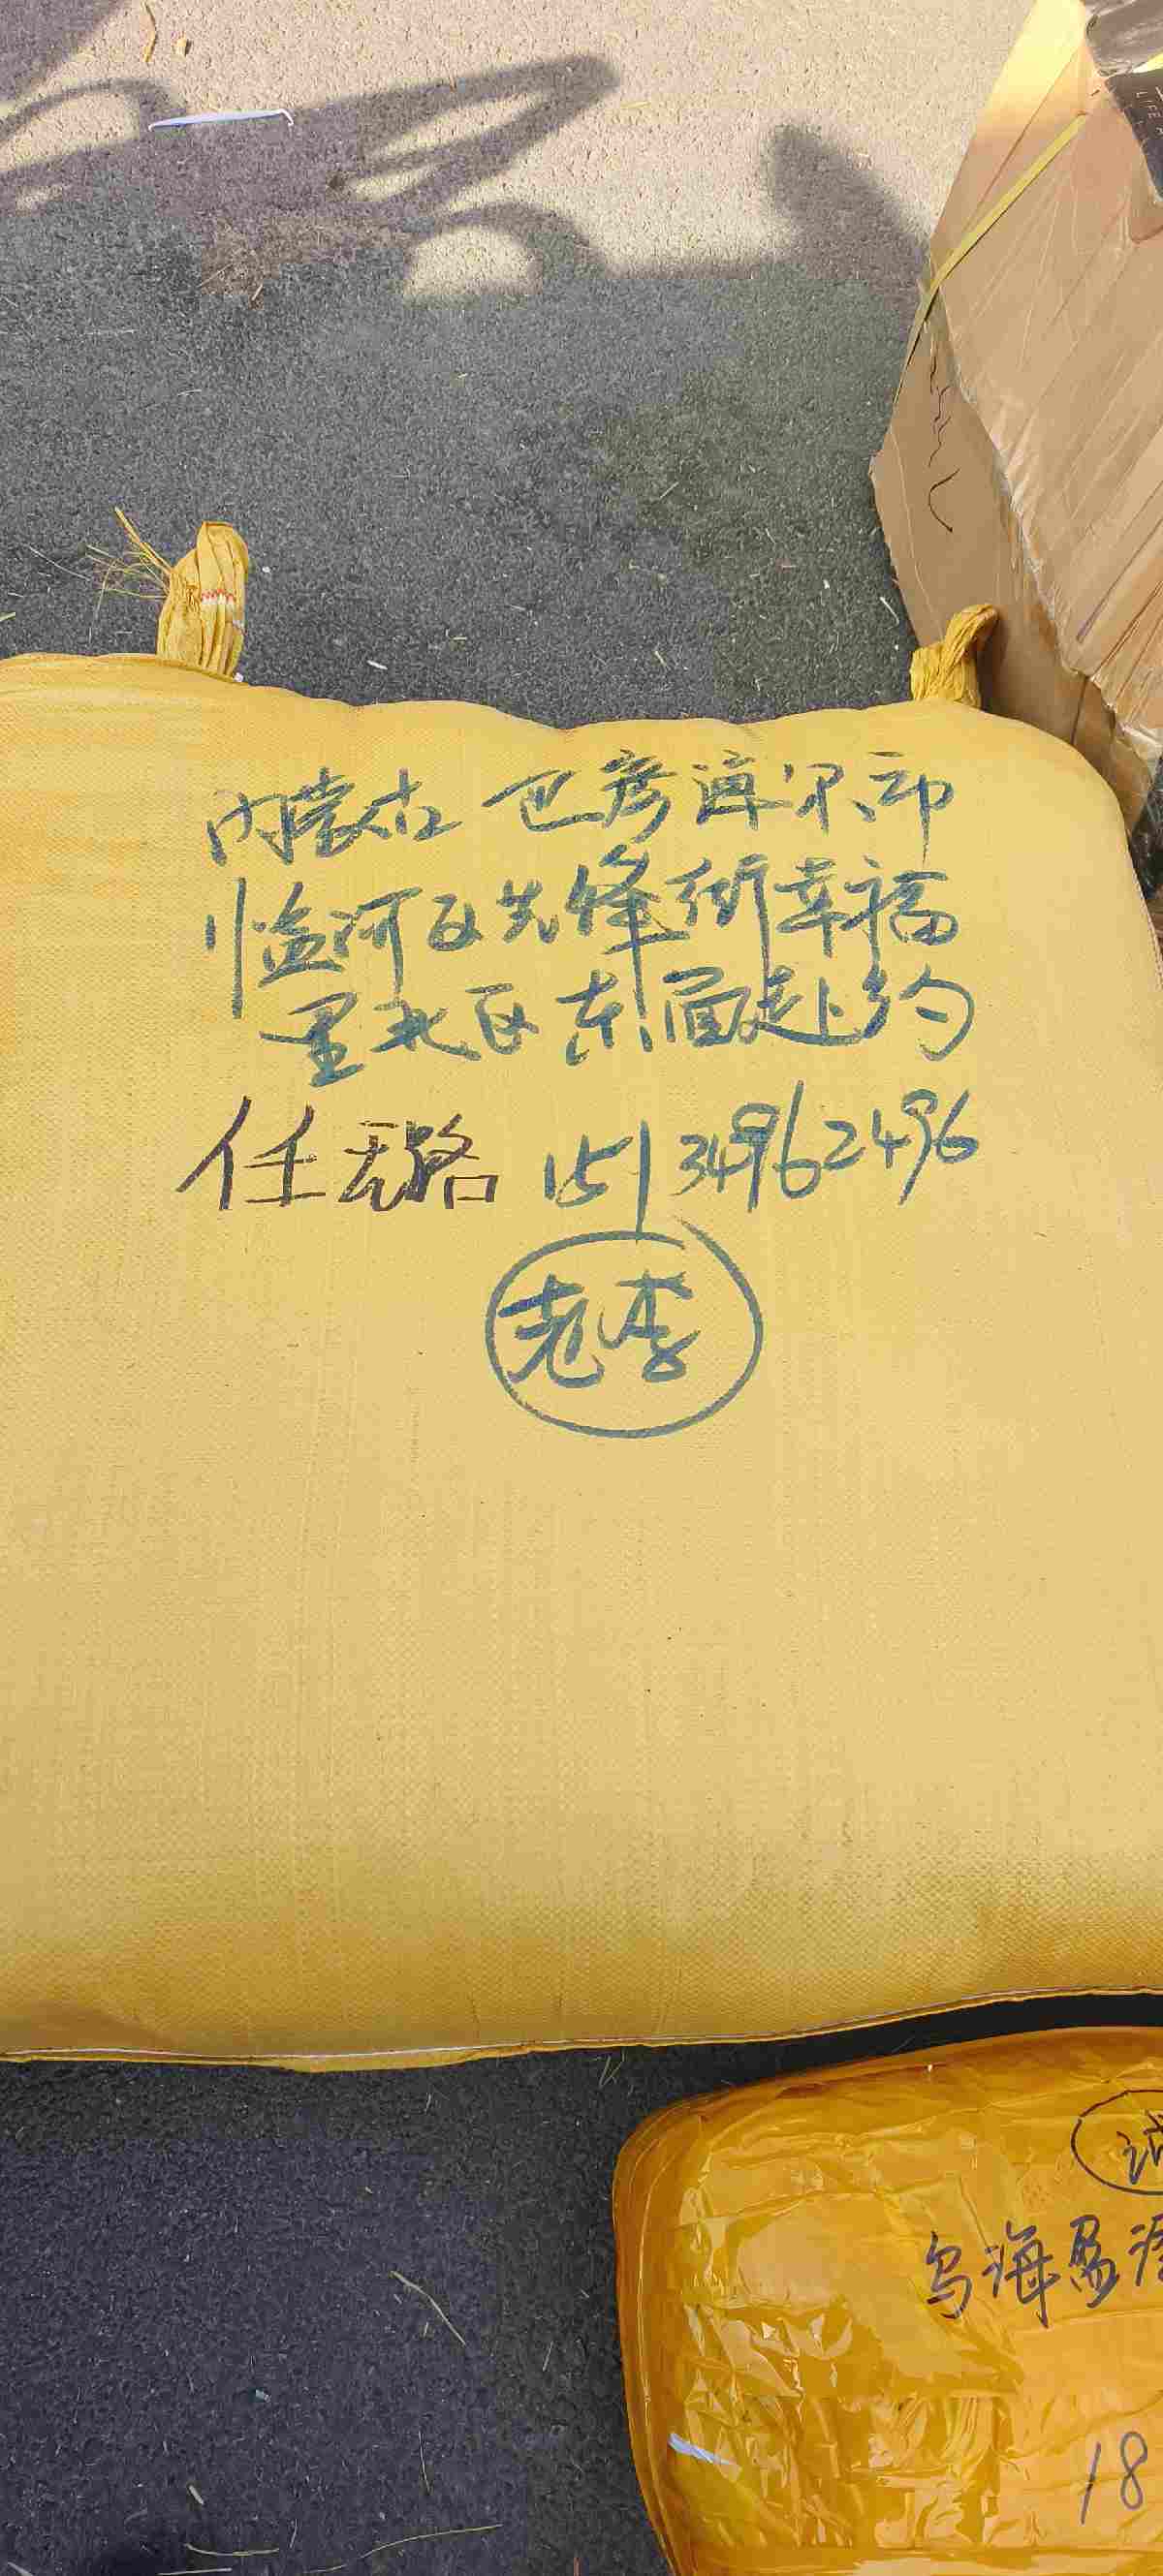 内蒙古 巴彦淖尔市
临河区先锋街幸福
里北区东面赴约
任无路 15134962496
老李
诚
乌海盈源
18
LIFE A